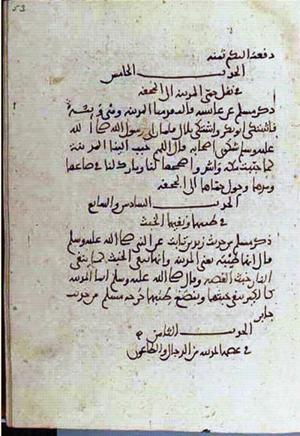 دفعة الىكم ثمنه
الحديث الخامس
في نقل حمى المدينة الى الجحفة
ذكر مسلم عن عائشة قالت قدمنا المدينة وهي وبيئة
فاشتكى ابو بكر واشتكى بلال فلما راى رسول الله صلى الله
عليه وسلم شكوى اصحابه قال اللهم حبب الينا المدينة
كما حببت مكة او اشد وصححها لنا وبارك لنا في صاعها
ومدها وحول حماها الى الجحفة
الحديث السادس والسابع
في طيبها ونفيها الخبث
ذكر مسلم من حديث زيد بن ثابت عن النبي صلى الله عليه وسلم
قال انها طيبة يعني المدينة وانها تنفي الخبث كما تنفي
النار خبث الفضة وقال صلى الله عليه وسلم انما المدينة
كالكير تنفي خبثها وينصع طيبها خرجه مسلم من حديث
جابر
الحديث الثامن
في عصمة المدينة من الدجال والطاعون